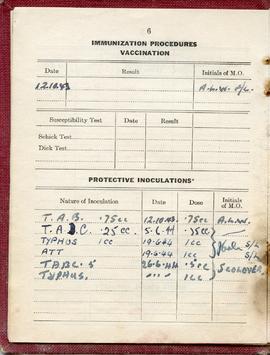 6
IMMUNIZATION PROCEDURES
VACCINATION
Date Result Initials of M.O.
12.10.43 S/L.
Susceptibility Test Date Result
Schick Test
Dick Test
PROTECTIVE INOCULATIONS
Nature of Inoculation Date Dose Initials of M.O.
T.A.B. .75cc 12.10.43. .75cc
T.A.B.C .25cc 5.6.44
TYPHUS 1cc 19.6.44 1cc S/L
ATT 19.6.44 1cc S/L
TABC. 26.6.44 .5cc
TYPHUS. " " " 1cc